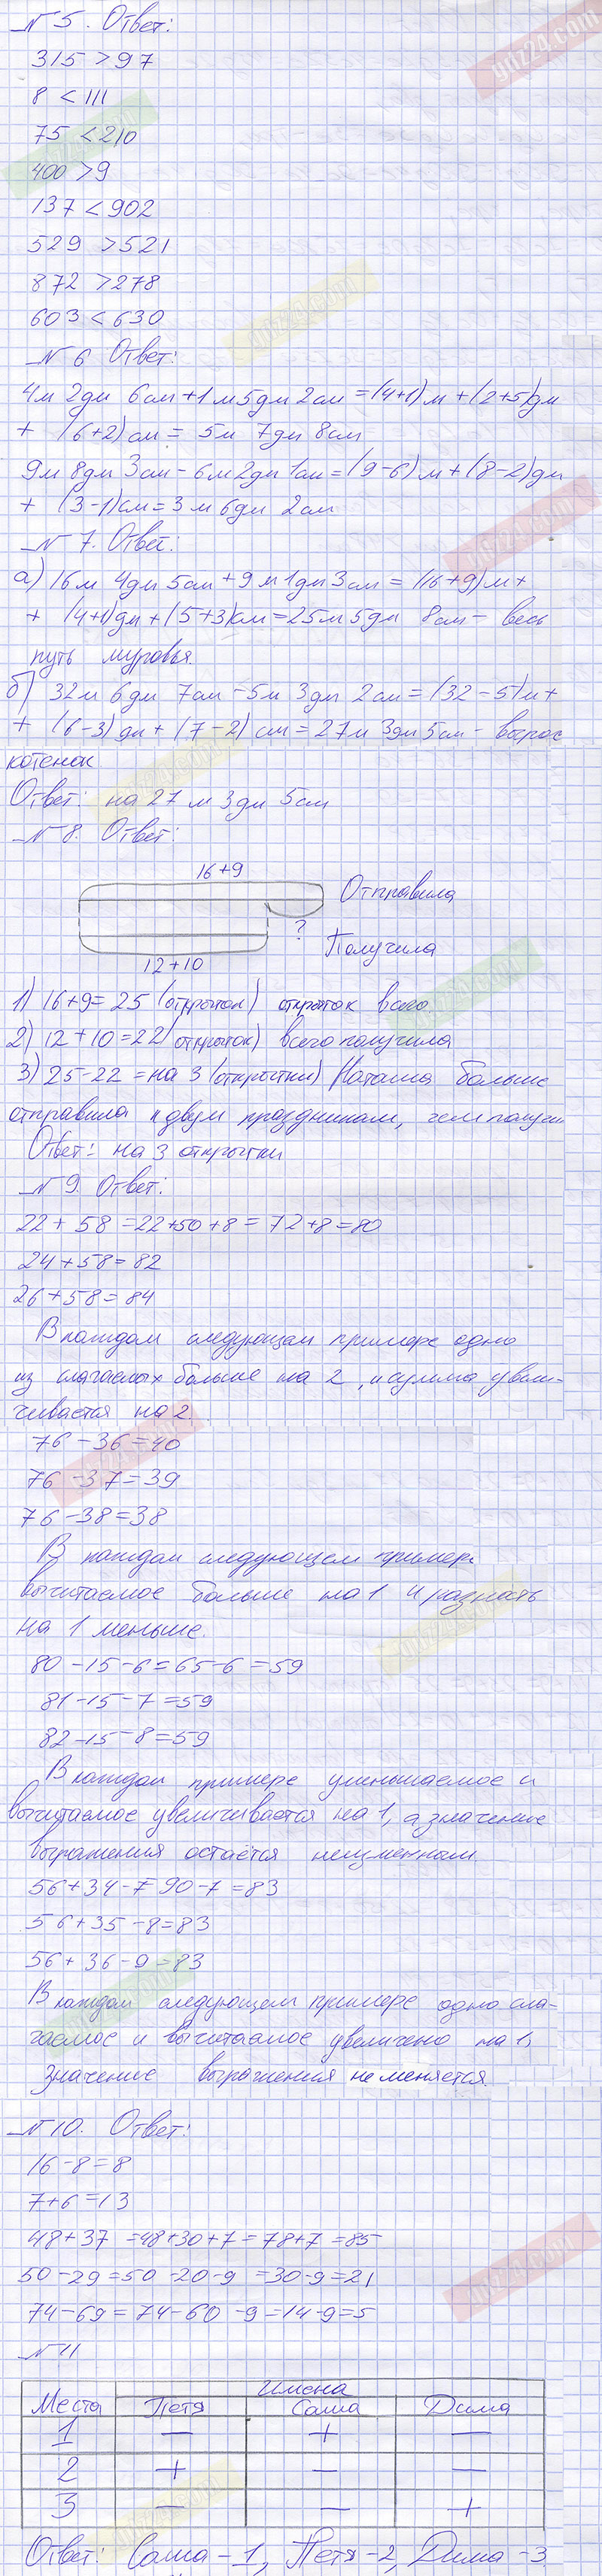 № 5. Ответ:
315 > 97
8 < 111
75 < 210
400 > 9
137 < 902
529 > 521
872 > 278
603 < 630
№ 6 Ответ:
4м 2дм 6см + 1м 5дм 2см = (4+1)м + (2+5)дм
+ (6+2)см = 5м 7дм 8см
9м 8дм 3см - 6м 2дм 1см = (9-6)м + (8-2)дм
+ (3-1)см = 3м 6дм 2см
№ 7. Ответ:
а) 16м 4дм 5см + 9м 1дм 3см = (16+9)м +
+ (4+1)дм + (5+3)км = 25м 5дм 8см - весь
путь муровья.
б) 32м 6дм 7см - 5м 3дм 2см = (32-5)м +
+ (6-3)дм + (7-2)см = 27м 3дм 5см -
котенок
Ответ: на 27 м 3дм 5см
№ 8. Ответ:
16+9
Отправила
?
Получила
12+10
1) 16+9 = 25 (открыток) открыток всего
2) 12+10 = 22 (открыток) всего получила
3) 25-22 = на 3 (открытки) Наташа больше
отправила к двум праздникам, чем получи
Ответ: на 3 открытки
№ 9. Ответ:
22 + 58 = 22+50+8 = 72+8 = 80
24+58 = 82
26+58 = 84
В каждом следующем примере одно
из слагаемых больше на 2, и сумма увели-
чивается на 2.
76 - 36 = 40
76 - 37 = 39
76 - 38 = 38
В каждом следующем примере
вычитаемое больше на 1 и разность
на 1 меньше.
80 - 15 - 6 = 65 - 6 = 59
81 - 15 - 7 = 59
82 - 15 - 8 = 59
В каждом примере уменьшаемое и
вычитаемое увеличивается на 1, а значение
выражения остаётся неизменным
56 + 34 - 7 90 - 7 = 83
56 + 35 - 8 = 83
56 + 36 - 9 = 83
В каждом следующем примере одно сла-
гаемое и вычитаемое увеличено на 1,
значение выражения не меняется.
№ 10. Ответ:
16 - 8 = 8
7 + 6 = 13
48 + 37 = 48+30+7 = 78+7 = 85
50 - 29 = 50 - 20 - 9 = 30 - 9 = 21
74 - 69 = 74 - 60 - 9 = 14 - 9 = 5
№ 11
Имена
Места Петя Саша Дима
1 - + -
2 + - -
3 - - +
Ответ: Саша - 1, Петя - 2, Дима - 3